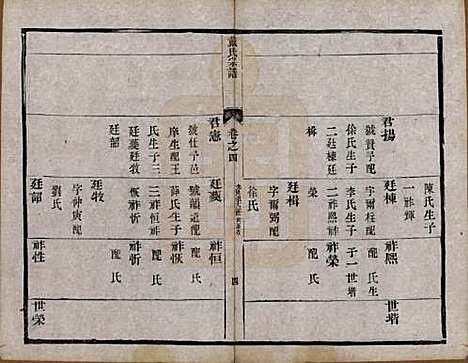 陳氏生子
一祚輝
君揚
號贊予配
徐氏生子
二廷棟廷
楫
廷棟
字爾柱配
李氏生子
二祚熙祚
榮
祚熙
配氏生
子一世堦
世堦
祚榮
配氏
廷楫
字爾弼配
徐氏
戴氏宗譜
卷之四
四
君憲
號仕予邑
庠生配王
氏生子三
廷蘷廷牧
廷韶
廷蘷
號韻遠配
薛氏生子
三祚恒祚
恢祚忻
祚恒
配氏
祚恢
配氏
祚忻
配氏
廷牧
字仲寅配
劉氏
廷韶
祚性
世榮